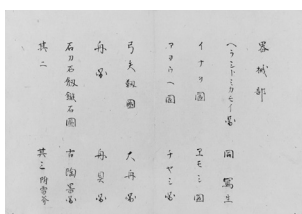 器械部
ヘラシトミカモイ圖 同 寫生
イナヲ圖 ヱモシ圖
圖 チヤシ圖
弓矢靱圖 大舟圖
舟圖 舟具圖
石刀石劔鏃石圖 古陶器圖
其二 其三附雷斧